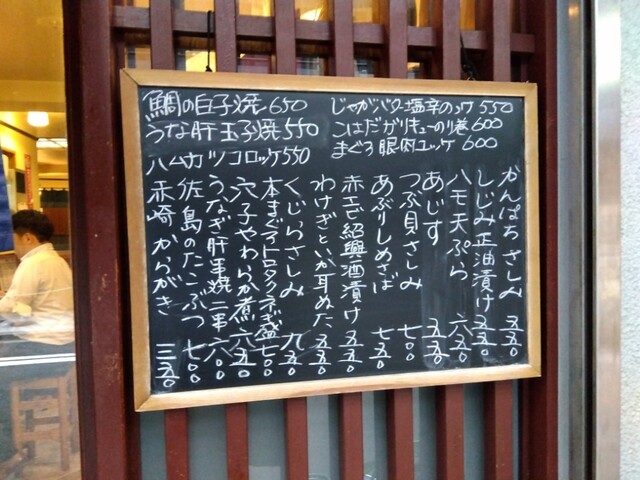 鯛の白子焼 650
うな肝玉子焼 550
ハムカツコロッケ 550
じゃがバター塩辛のっけ 550
こはだガリキューのり巻 600
まぐろ眼肉ユッケ 600
かんぱちさしみ 五五〇
しじみ正油漬け 五五〇
ハモ天ぷら 六五〇
あじす 五五〇
つぶ貝さしみ 七〇〇
あぶりしめさば 七五〇
赤エビ紹興酒漬け 五五〇
わけぎといか耳ぬた 五五〇
くじらさしみ 九五〇
本まぐイトロタクネギ盛 七〇〇
穴子やわらか煮 六五〇
うなぎ肝串焼二串 六〇〇
佐島のたこぶつ 七〇〇
赤崎からがき 三五〇